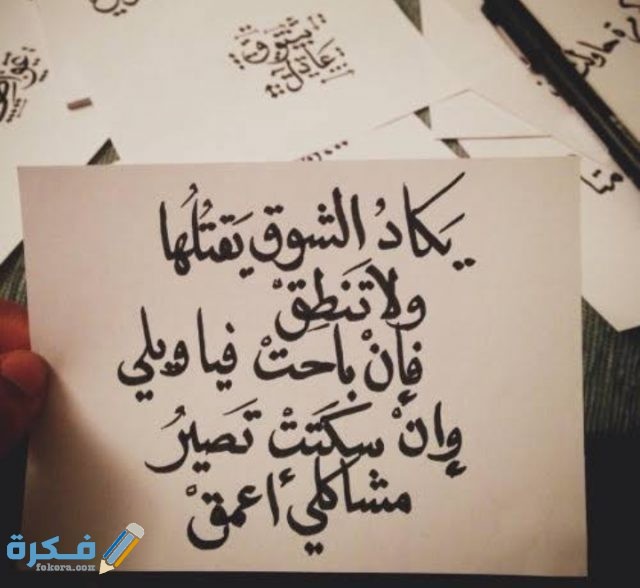 يشوق
عادل
يَكادُ الشوق يَقتُلُها
ولا تَنطِقْ
فإنْ باحتْ فيا ويلي
وإنْ سكَتَتْ تَصيرُ
مشاكلي أعمقْ
فكرة
fokora.com